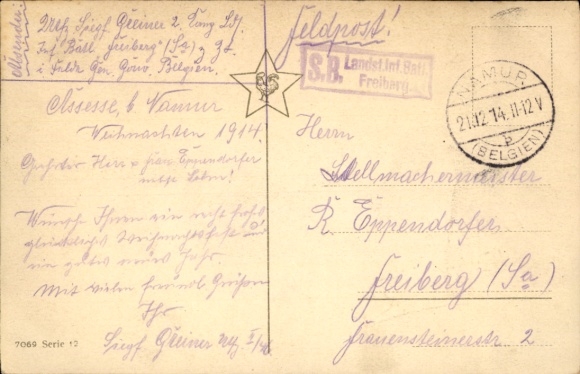 Absender:
Utffz Siegf. Greiner 2. Komp Ldst.
Inf. Batl. Freiberg (Sa) z. Zt.
i. Felde Gen. Gouv. Belgien.
Feldpost!
S.B. Landst. Inf. Batl.
Freiberg
NAMUR
21.12.14. 11-12 V
b
(BELGIEN)
Assesse, b. Namur
Weihnachten 1914.
Geehrter Herr Eppendorfer
Wünsche Ihnen ein recht frohes,
glückliches Weihnachtsfest und
ein gutes neues Jahr.
Mit vielen freundl. Grüßen
Ihr
Siegf. Greiner
Herrn
Stellmachermeister
R. Eppendorfer
Freiberg (Sa)
Frauensteinerstr. 2
7069 Serie 12